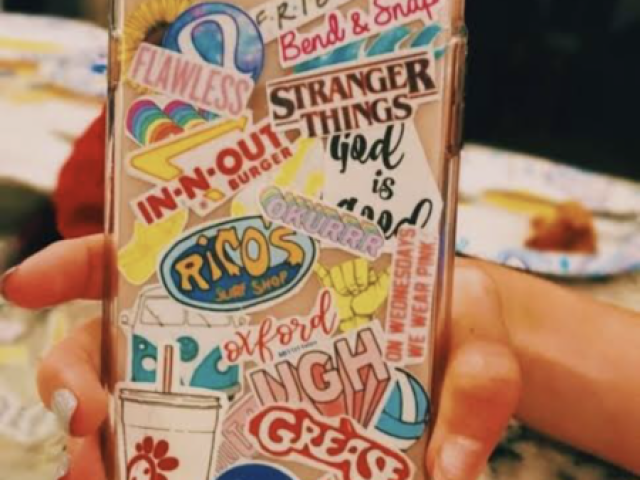 F.R.I.E
Bend & Snap
FLAWLESS
STRANGER
THINGS
God
is
good
IN-N-OUT
BURGER
OKURRR
RICO'S
SURF SHOP
ON WEDNESDAYS
WE WEAR PINK
oxford
NGH
GREASE